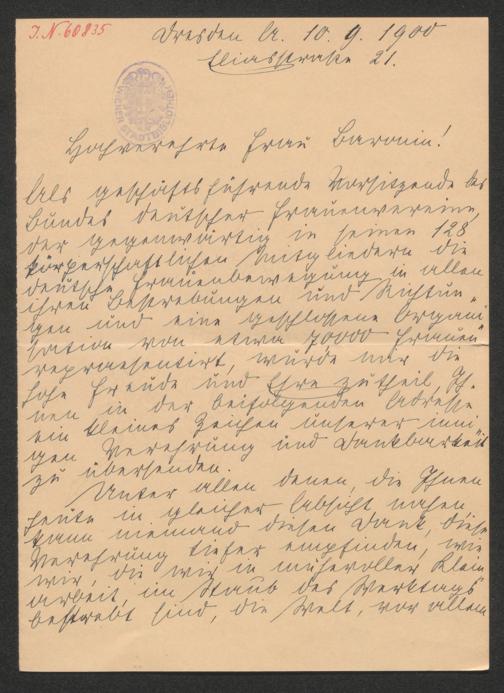 J.N. 60835
Dresden A. 10. 9. 1900
Eliasstraße 21.
WIENER STADTBIBLIOTHEK
Hochverehrte Frau Baronin!
Als geschäftsführende Vorsitzende des
Bundes deutscher Frauenvereine,
der gegenwärtig in seinen 128
körperschaftlichen Mitgliedern die
deutsche Frauenbewegung in allen
ihren Bestrebungen und Richtun„
gen und eine geschlossene Organi
sation von etwa 70000 Frauen
repraesentirt, wurde mir die
hohe Freude und Ehre zutheil, Ih„
nen in der beifolgenden Adresse
ein kleines Zeichen unserer inni„
gen Verehrung und Dankbarkeit
zu übersenden.
Unter allen denen, die Ihnen
heute in gleicher Absicht nahen,
kann niemand diesen Dank, diese
Verehrung tiefer empfinden, wie
wir, die wir in mühevoller Klein
arbeit, im Staub des Werktags
bestrebt sind, die Welt, vor allem